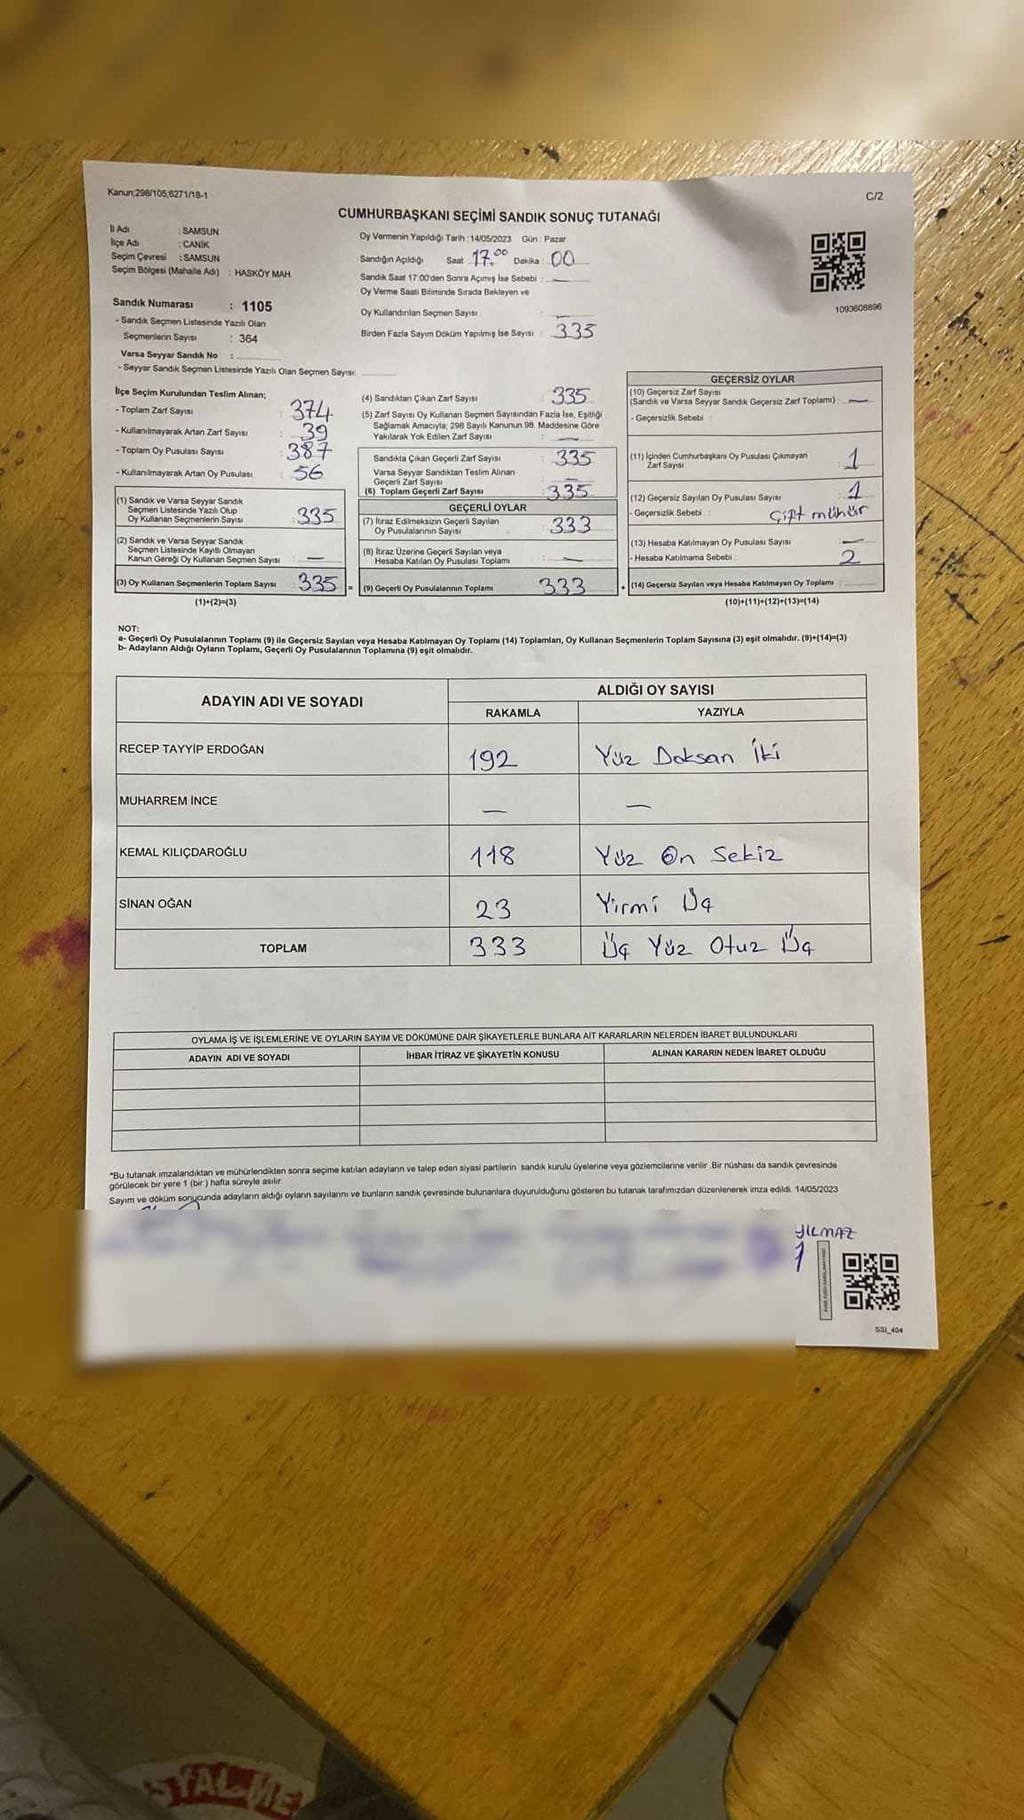 Kanun;298/105;6271/18-1
C/2
CUMHURBAŞKANI SEÇİMİ SANDIK SONUÇ TUTANAĞI
İl Adı : SAMSUN
İlçe Adı : CANİK
Seçim Çevresi : SAMSUN
Seçim Bölgesi (Mahalle Adı) : HASKÖY MAH
Sandık Numarası : 1105
- Sandık Seçmen Listesinde Yazılı Olan
Seçmenlerin Sayısı : 364
Varsa Seyyar Sandık No :
- Seyyar Sandık Seçmen Listesinde Yazılı Olan Seçmen Sayısı:
Oy Vermenin Yapıldığı Tarih : 14/05/2023 Gün : Pazar
Sandığın Açıldığı Saat 17.00 Dakika : 00
Sandık Saat 17.00'den Sonra Açımış İse Sebebi : —
Oy Verme Saati Bitiminde Sırada Bekleyen ve
Oy Kullandırılan Seçmen Sayısı : —
Birden Fazla Sayım Döküm Yapılmış İse Sayısı : 335
1093608896
İlçe Seçim Kurulundan Teslim Alınan;
- Toplam Zarf Sayısı : 374
- Kullanılmayarak Artan Zarf Sayısı : 39
- Toplam Oy Pusulası Sayısı : 387
- Kullanılmayarak Artan Oy Pusulası : 56
(1) Sandık ve Varsa Seyyar Sandık
Seçmen Listesinde Yazılı Olup
Oy Kullanan Seçmenlerin Sayısı : 335
(2) Sandık ve Varsa Seyyar Sandık
Seçmen Listesinde Kayıtlı Olmayan
Kanun Gereği Oy Kullanan Seçmen Sayısı : —
(3) Oy Kullanan Seçmenlerin Toplam Sayısı : 335 =
(1)+(2)=(3)
(4) Sandıktan Çıkan Zarf Sayısı : 335
(5) Zarf Sayısı Oy Kullanan Seçmen Sayısından Fazla İse, Eşitliği
Sağlamak Amacıyla; 298 Sayılı Kanunun 98. Maddesine Göre
Yakılarak Yok Edilen Zarf Sayısı : —
Sandıkta Çıkan Geçerli Zarf Sayısı : 335
Varsa Seyyar Sandıktan Teslim Alınan
Geçerli Zarf Sayısı : —
(6) Toplam Geçerli Zarf Sayısı : 335
GEÇERLİ OYLAR
(7) İtiraz Edilmeksizin Geçerli Sayılan
Oy Pusulalarının Sayısı : 333
(8) İtiraz Üzerine Geçerli Sayılan veya
Hesaba Katılan Oy Pusulaları Toplamı : —
(9) Geçerli Oy Pusulalarının Toplamı : 333 +
GEÇERSİZ OYLAR
(10) Geçersiz Zarf Sayısı
(Sandık ve Varsa Seyyar Sandık Geçersiz Zarf Toplamı) : —
- Geçersizlik Sebebi :
(11) İçinden Cumhurbaşkanı Oy Pusulası Çıkmayan
Zarf Sayısı : 1
(12) Geçersiz Sayılan Oy Pusulası Sayısı : 1
- Geçersizlik Sebebi : Çift mühür
(13) Hesaba Katılmayan Oy Pusulası Sayısı : —
- Hesaba Katılmama Sebebi : 2
(14) Geçersiz Sayılan veya Hesaba Katılmayan Oy Toplamı :
(10)+(11)+(12)+(13)=(14)
NOT:
a- Geçerli Oy Pusulalarının Toplamı (9) ile Geçersiz Sayılan veya Hesaba Katılmayan Oy Toplamı (14) Toplamları, Oy Kullanan Seçmenlerin Toplam Sayısına (3) eşit olmalıdır. (9)+(14)=(3)
b- Adayların Aldığı Oyların Toplamı, Geçerli Oy Pusulalarının Toplamına (9) eşit olmalıdır.
ADAYIN ADI VE SOYADI
ALDIĞI OY SAYISI
RAKAMLA YAZIYLA
RECEP TAYYİP ERDOĞAN 192 Yüz Doksan İki
MUHARREM İNCE — —
KEMAL KILIÇDAROĞLU 118 Yüz On Sekiz
SİNAN OĞAN 23 Yirmi Üç
TOPLAM 333 Üç Yüz Otuz Üç
OYLAMA İŞ VE İŞLEMLERİNE VE OYLARIN SAYIM VE DÖKÜMÜNE DAİR ŞİKAYETLERLE BUNLARA AİT KARARLARIN NELERDEN İBARET BULUNDUKLARI
ADAYIN ADI VE SOYADI İHBAR İTİRAZ VE ŞİKAYETİN KONUSU ALINAN KARARIN NEDEN İBARET OLDUĞU
*Bu tutanak imzalandıktan ve mühürlendikten sonra seçime katılan adayların ve talep eden siyasi partilerin sandık kurulu üyelerine veya gözlemcilerine verilir .Bir nüshası da sandık çevresinde
görülecek bir yere 1 (bir ) hafta süreyle asılır.
Sayım ve döküm sonucunda adayların aldığı oyların sayılarını ve bunların sandık çevresinde bulunanlara duyurulduğunu gösteren bu tutanak tarafımızdan düzenlenerek imza edildi. 14/05/2023
YILMAZ
SSI_404